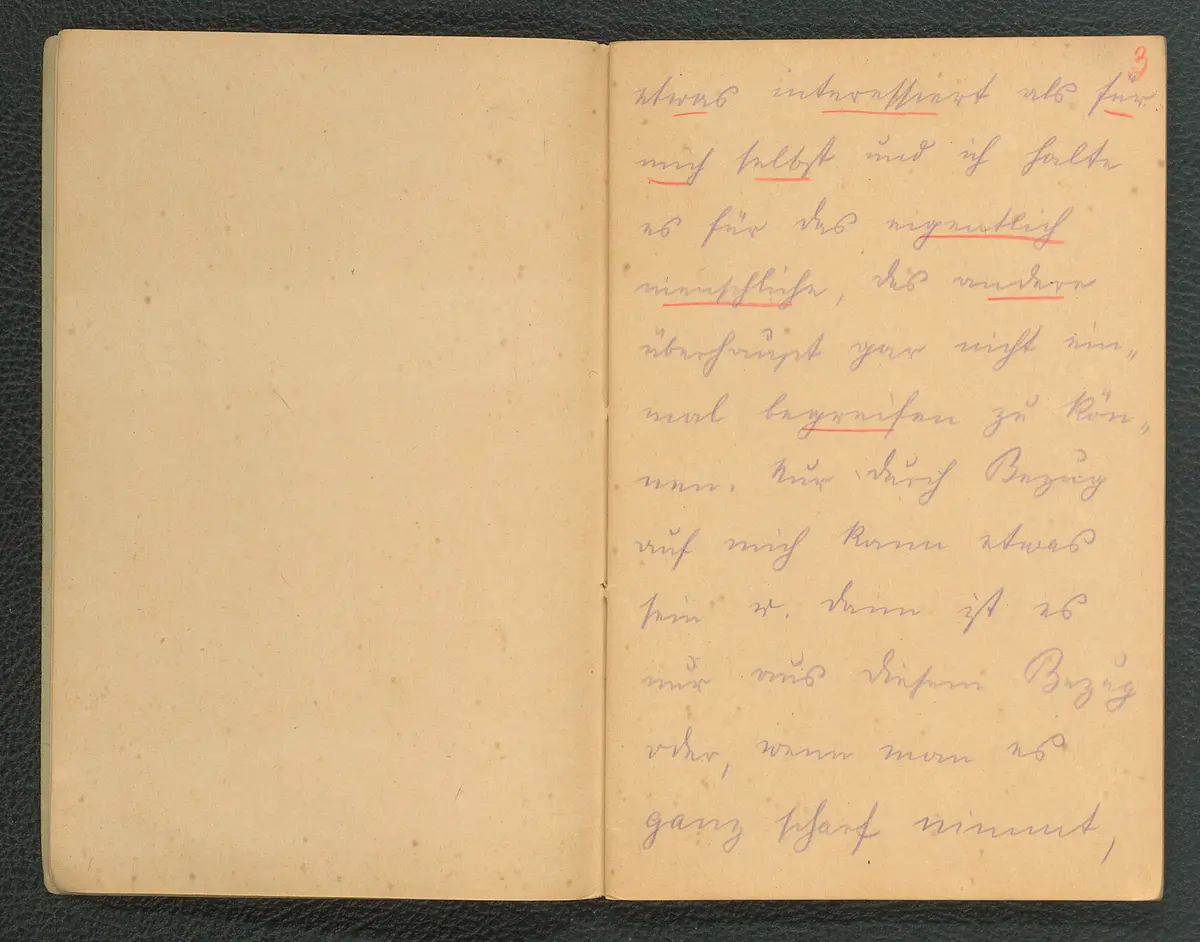 3
etwas interessiert als für
mich selbst und ich halte
es für das eigentlich
menschliche, das andere
überhaupt gar nicht ein-
mal begreifen zu kön-
nen. Nur durch Bezug
auf mich kann etwas
sein u. dann ist es
nur aus diesem Bezug
oder, wenn man es
ganz scharf nimmt,